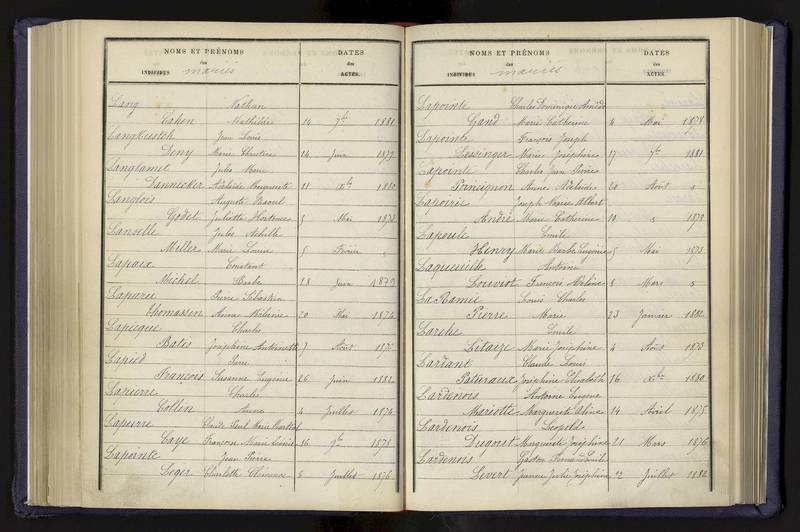 NOMS ET PRÉNOMS
des
INDIVIDUS mariés
DATES
des
ACTES.
Lang Nathan
Cahen Mathilde 14 7bre 1881
Jean Louis
Deny Marie Christine 14 Juin 1879
Langlamet Jules
Dannecker Adelaïde Marguerite 11 Xbre 1880
Langlois Auguste
Godet Juliette Hortense 5 Mai 1878
Lanselle Jules Achille
Miller Marie Louise 5 Février "
Lapaix Constant
Michel Barbe 28 Juin 1879
Laparu Pierre Sébastien
Thomassin Anna Mélanie 20 Mai 1876
Lapicque Charles
Batis Joséphine Antoinette 7 Août 1875
Lapied Pierre
François Susanne Eugénie 26 Juin 1882
Lapierre Charles
Collin Anne 4 Juillet 1874
Lapierre Claude Paul Marie Martial
Caye Françoise Marie 16 9bre 1878
Lapointe Jean Pierre
Leger Charlotte Clémence 5 Juillet 1876
NOMS ET PRÉNOMS
des
INDIVIDUS mariés
DATES
des
ACTES.
Lapointe Charles Dominique Amédé
Gand Marie Catherine 4 Mai 1878
Lapointe François Joseph
Lessinger Marie Joséphine 17 7bre 1881
Lapointe Charles Jean Pierre
Prinsignon Anne Adélaïde 20 Août "
Lapoirie Joseph Albert
André Marie Catherine 10 " 1879
Lapoule Emile
Henry Marie Barbe Eugénie 5 Mai 1875
Antoine
Louviot 8 Mars "
La Ramée Louis Charles
Pierre Marie 23 Janvier 1882
Larche Emile
Litaize Marie Joséphine 4 Août 1873
Lardant Claude Louis
Patureaux Joséphine Elisabeth 16 Xbre 1880
Lardenois Antoine Eugène
Mariotte Marguerite Aline 14 Avril 1875
Lardenois Léopold
Dugnit Marguerite Joséphine 21 Mars 1876
Lardenois Gaston
Levert Jeanne Julie Joséphine 12 Juillet 1882